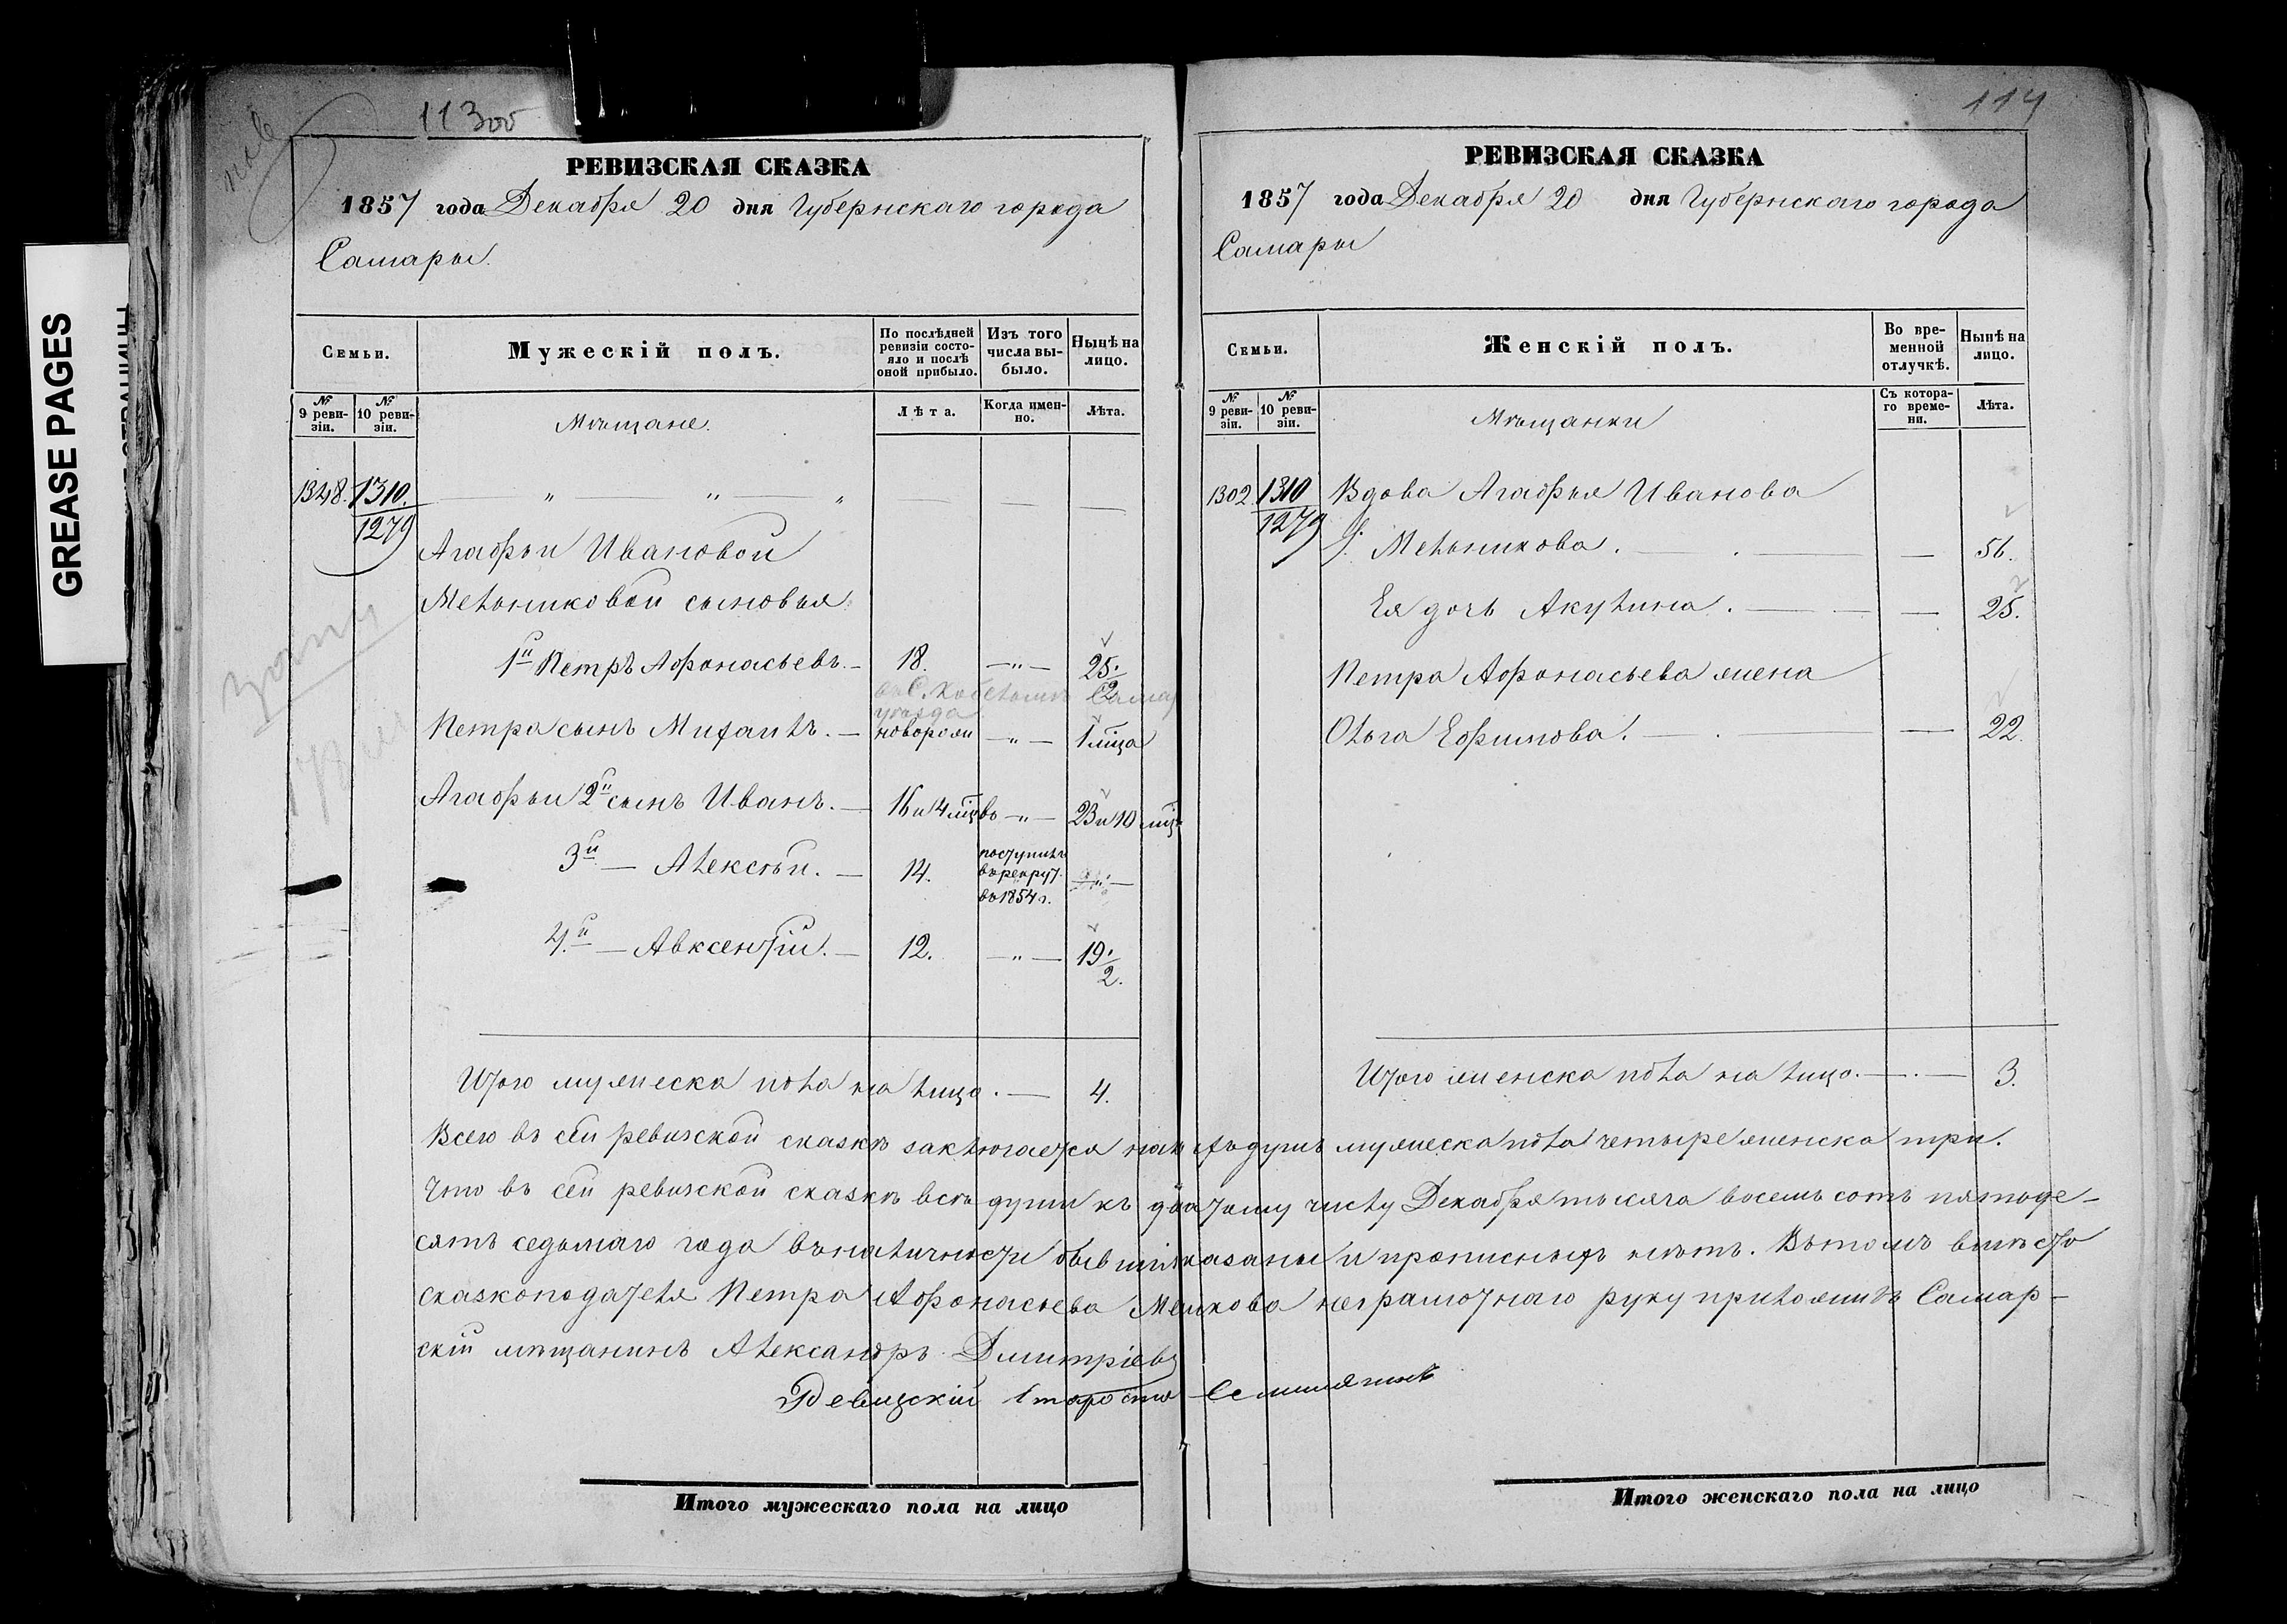 GREASE PAGES
1130о
РЕВИЗСКАЯ СКАЗКА
1857 года Декабря 20 дня Губернскаго города
Самары.
Семьи.
Мужескій полъ.
По послѣдней ревизіи состояло и послѣ оной прибыло.
Изъ того числа выбыло.
Нынѣ на лицо.
№ 9 ревизіи.
№ 10 ревизіи.
Мѣщане.
Лѣта.
Когда именно.
Лѣта.
1348. 1310. „ „ „
1279
Агафьи Ивановой
Мельниковой сыновья
1й Петръ Афонасьевъ. 18. „ 25 1/2
уѣзда
Петра сынъ Михаилъ. новорож „ 1 мѣца
Агафьи 2й сынъ Иванъ. 16 и 4 мцвъ „ 23 и 10 мцъ
3й — Алексѣй. 14. поступилъ в рекрут. въ 1854 г. „
4й — Авксентій. 12. „ 19 1/2.
Итого мужеска пола на лицо. 4.
114
РЕВИЗСКАЯ СКАЗКА
1857 года Декабря 20 дня Губернскаго города
Самары
Семьи.
Женскій полъ.
Во временной отлучкѣ.
Нынѣ на лицо.
№ 9 ревизіи.
№ 10 ревизіи.
Мѣщанки
Съ котораго времени.
Лѣта.
1302 1310 Вдова Агафья Иванова
1279 Мельникова. — 56.
Ея дочь Акулина. — 25.
Петра Афонасьева жена
Ольга Ефимова. — 22.
Итого женска пола на лицо. 3.
Всего въ сей ревизской сказкѣ заключается душъ мужеска пола четыре женска три.
Что въ сей ревизской сказкѣ всѣ души къ числу Декабря тысяча восемь сотъ пятьде-
сятъ седьмаго года въ наличности бывшія показаны и прописныхъ нѣтъ. Въ томъ вмѣсто
сказкоподателя Петра Афонасьева неграмотнаго руку приложилъ Самар-
скій мѣщанинъ Александръ Дмитріевъ
Ревизскій староста
Итого мужескаго пола на лицо
Итого женскаго пола на лицо